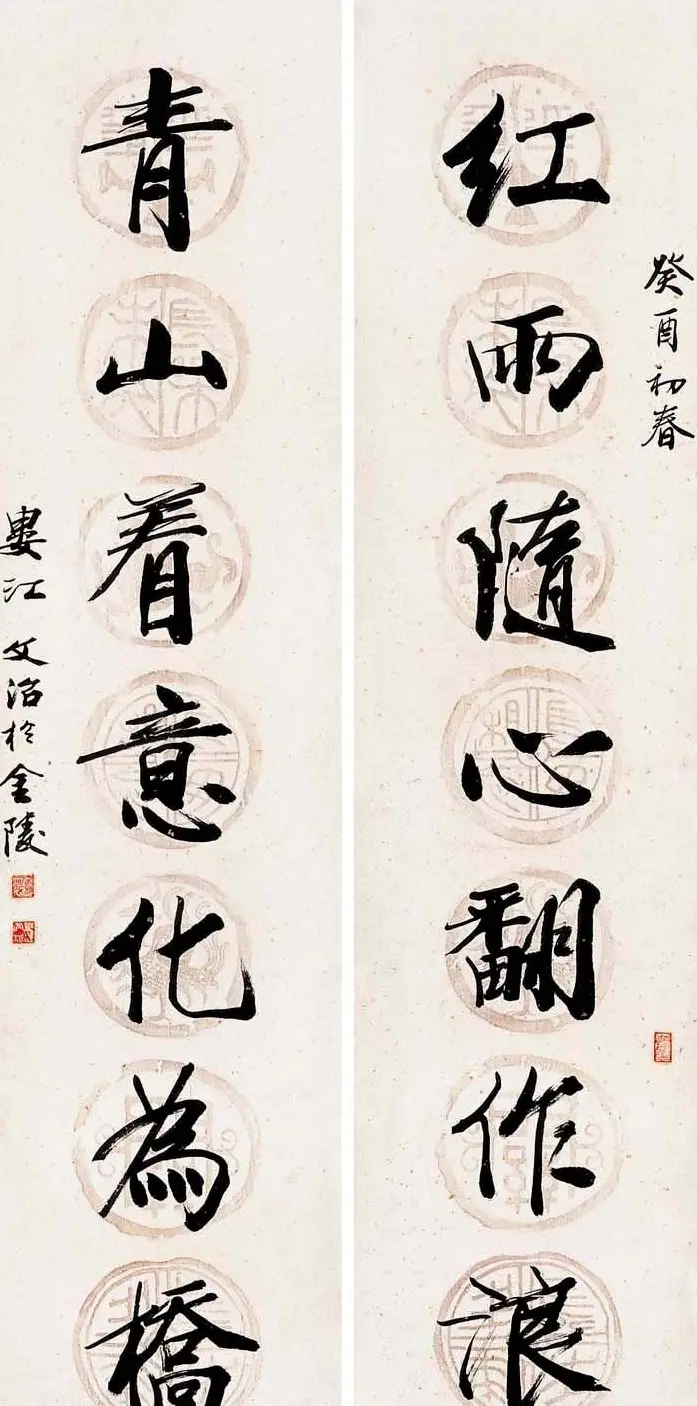 癸酉初春
红雨隨心翻作浪
青山着意化為橋
婁江文治於金陵